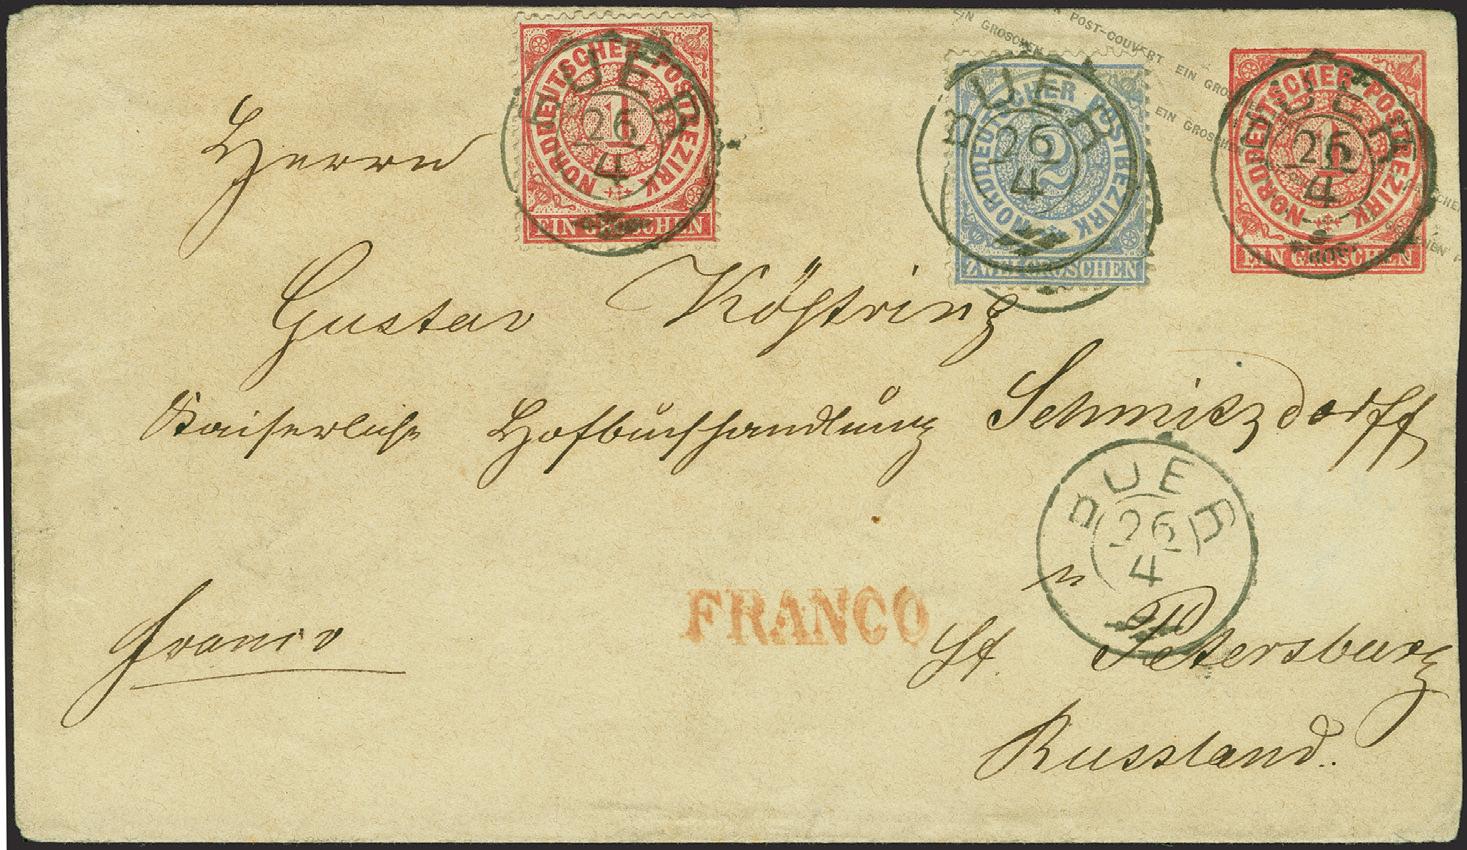 EIN GROSCHEN POST-COUVERT EIN GROSCHEN
EIN GROSCHEN
NORDDEUTSCHER POSTBEZIRK
1
EIN GROSCHEN
BUER
26
4
NORDDEUTSCHER POSTBEZIRK
2
ZWEI GROSCHEN
BUER
26
4
NORDDEUTSCHER POSTBEZIRK
1
EIN GROSCHEN
BUER
26
4
Herrn
Gustav Köstring
Kaiserliche Hofbuchhandlung Schmitzdorff
BUER
26
4
in
Franco
FRANCO
St. Petersburg
Russland.